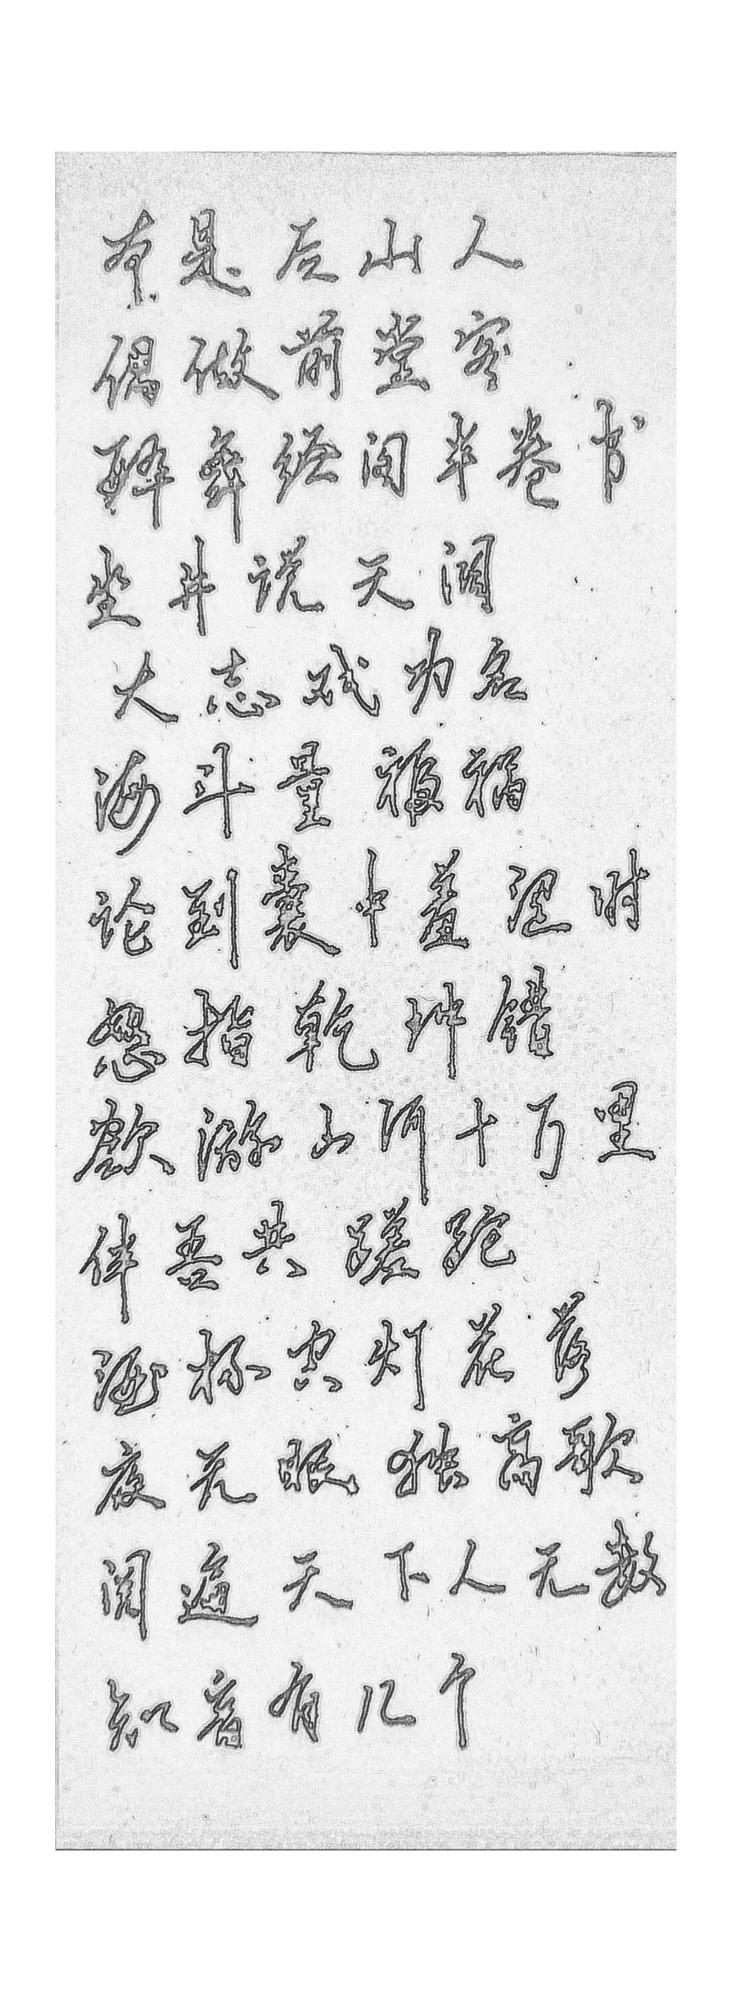 本是后山人
偶做前堂客
醉舞经阁半卷书
坐井说天阔
大志戏功名
海斗量福祸
论到囊中羞涩时
怒指乾坤错
欲游山河十万里
伴吾共蹉跎
酒杯空灯花落
夜无眠独高歌
阅遍天下人无数
知音有几个